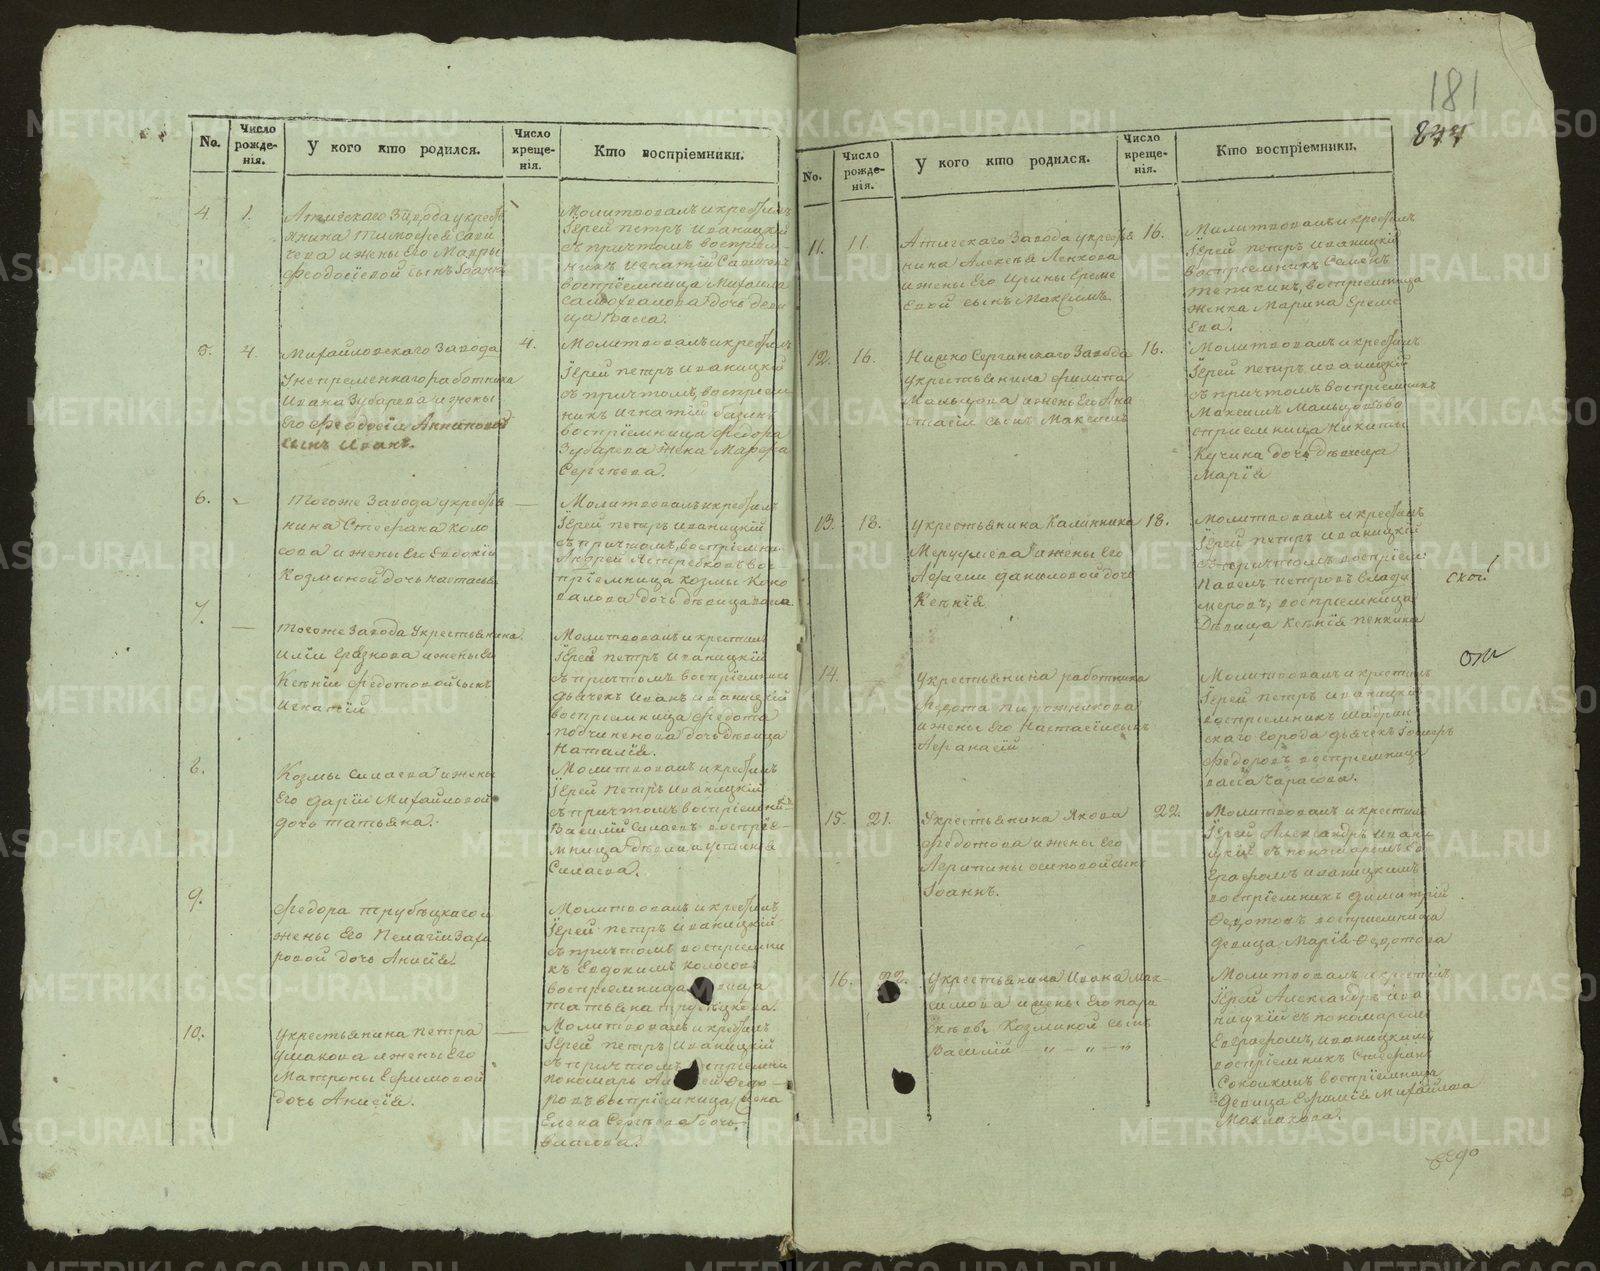 181
844
No.
Число рожде-нія.
У кого кто родился.
Число креще-нія.
Кто воспріемники.
4. 1.
Атигскаго Завода у крестья
янина Тимофея Сави
чева и жены Его Мавры
Феодосіевой сынъ Іоаннъ
Молитвовалъ и крестилъ
Іерей Петръ Иваницкій
съ причтомъ воспріем-
никъ Игнатій Савичевъ
воспріемница Михаила
Самохвалова дочь деви
ца Васса.
5. 4.
Михайловскаго Завода
Унепременнаго работника
Ивана Зубарева и жены
Его Феодосіи
сынъ Иванъ.
4.
Молитвовалъ и крестилъ
Іерей Петръ Иваницкій
съ причтомъ, воспріем
никъ Игнатій
воспріемница Федора
Зубарева жена Марфа
Сергѣева.
6. -
Тогоже Завода у крестья
нина Стефана Коло
сова и жены Его Евдокіи
Козминой дочь Настасья
—
Молитвовалъ и крестилъ
Іерей Петръ Иваницкій
съ причтомъ, воспріемни.
Андрей Ястребковъ вос
пріемница Козмы Коно
валова дочь дѣвица
7. —
Тогоже Завода У крестьянина
Иліи Грязнова и жены Его
Ксеніи Федотовой сынъ
Игнатій
Молитвовалъ и крестилъ
Іерей Петръ Иваницкій
съ причтомъ воспріемникъ
дьячекъ Иванъ Иваницкій
воспріемница Федота
Подчиненова дочь дѣвица
Наталія.
8.
Козмы Силаева и жены
Его Даріи Михайловой
дочь Татьяна.
Молитвовалъ и крестилъ
Іерей Петръ Иваницкій
съ причтомъ воспріемникъ
Василій Силаевъ воспріе-
мница дѣвица Устинья
Силаева.
9.
Федора Трубѣцкаго и
жены Его Пелагіи Заха
ровой дочь Анисія.
Молитвовалъ и крестилъ
Іерей Петръ Иваницкій
съ причтомъ воспріемни
къ Евдокимъ Колосовъ
воспріемница
Татьяна Трубѣцкова.
10.
У крестьянина Петра
Ушакова и жены Его
Матроны Ефимовой
дочь Анисія.
—
Молитвовалъ и крестилъ
Іерей Петръ Иваницкій
съ причтомъ воспріемни
пономарь Федо-
ровъ воспріемница
Елена Сергѣева дочь
Власова.
No.
Число рожде-нія.
У кого кто родился.
Число креще-нія.
Кто воспріемники.
11. 11.
Атигскаго Завода у кресть
нина Алексѣя Ленкова
и жены Его Ирины Ереме
Евой сынъ Максимъ
16.
Молитвовалъ и крестилъ
Іерей Петръ Иваницкій
воспріемникъ Семенъ
Тепикинъ, воспріемница
женка Марина Ереме
Ева.
12. 16.
Нижно Сергинскаго Завода
у крестьянина Филипа
Мальцова и жены Его Ана
стасіи сынъ Максимъ
16.
Молитвовалъ и крестилъ
Іерей Петръ Иваницкій
съ причтомъ воспріемникъ
Максимъ Мальцовъ во
спріемница Никиты
Кучина дочь дѣвица
Марія
13. 18.
У крестьянина Калинника
и жены Его
Агафіи Даниловой дочь
Ксѣнія
18.
Молитвовалъ и крестилъ
Іерей Петръ Иваницкій
съ причтомъ воспріем:
Павелъ Петровъ Влади
меровъ, воспріемница
Дѣвица Ксѣнія Пенкина
14. -
У крестьянина работника
Федота Пирожникова
и жены Его Настасіи сынъ
Афанасій
Молитвовалъ и крестилъ
Іерей Петръ Иваницкій
воспріемникъ Шадрин
скаго Города дьячекъ
Федоровъ воспріемница
Васса Тарасова.
15. 21.
У крестьянина Якова
Федотова и жены Его
Агрипины Осиповой сынъ
Іоаннъ.
22.
Молитвовалъ и крестилъ
Іерей Александръ Ивани
цкій съ пономаремъ Ев
графомъ Иваницкимъ
воспріемникъ Димитрій
Федотовъ воспріемница
девица Марія Федотова
16. 22.
У крестьянина Ивана Мак-
симова и жены Его Пара
Козминой сынъ
Василій — „ — „ — „
Молитвовалъ и крестилъ
Іерей Александръ Ива
ницкій съ пономаремъ
Евграфомъ Иваницкимъ
воспріемникъ Стефанъ
Соколкинъ воспріемница
девица Ефимія Михайлова
Маклакова.
Федо
METRIKI.GASO-URAL.RU